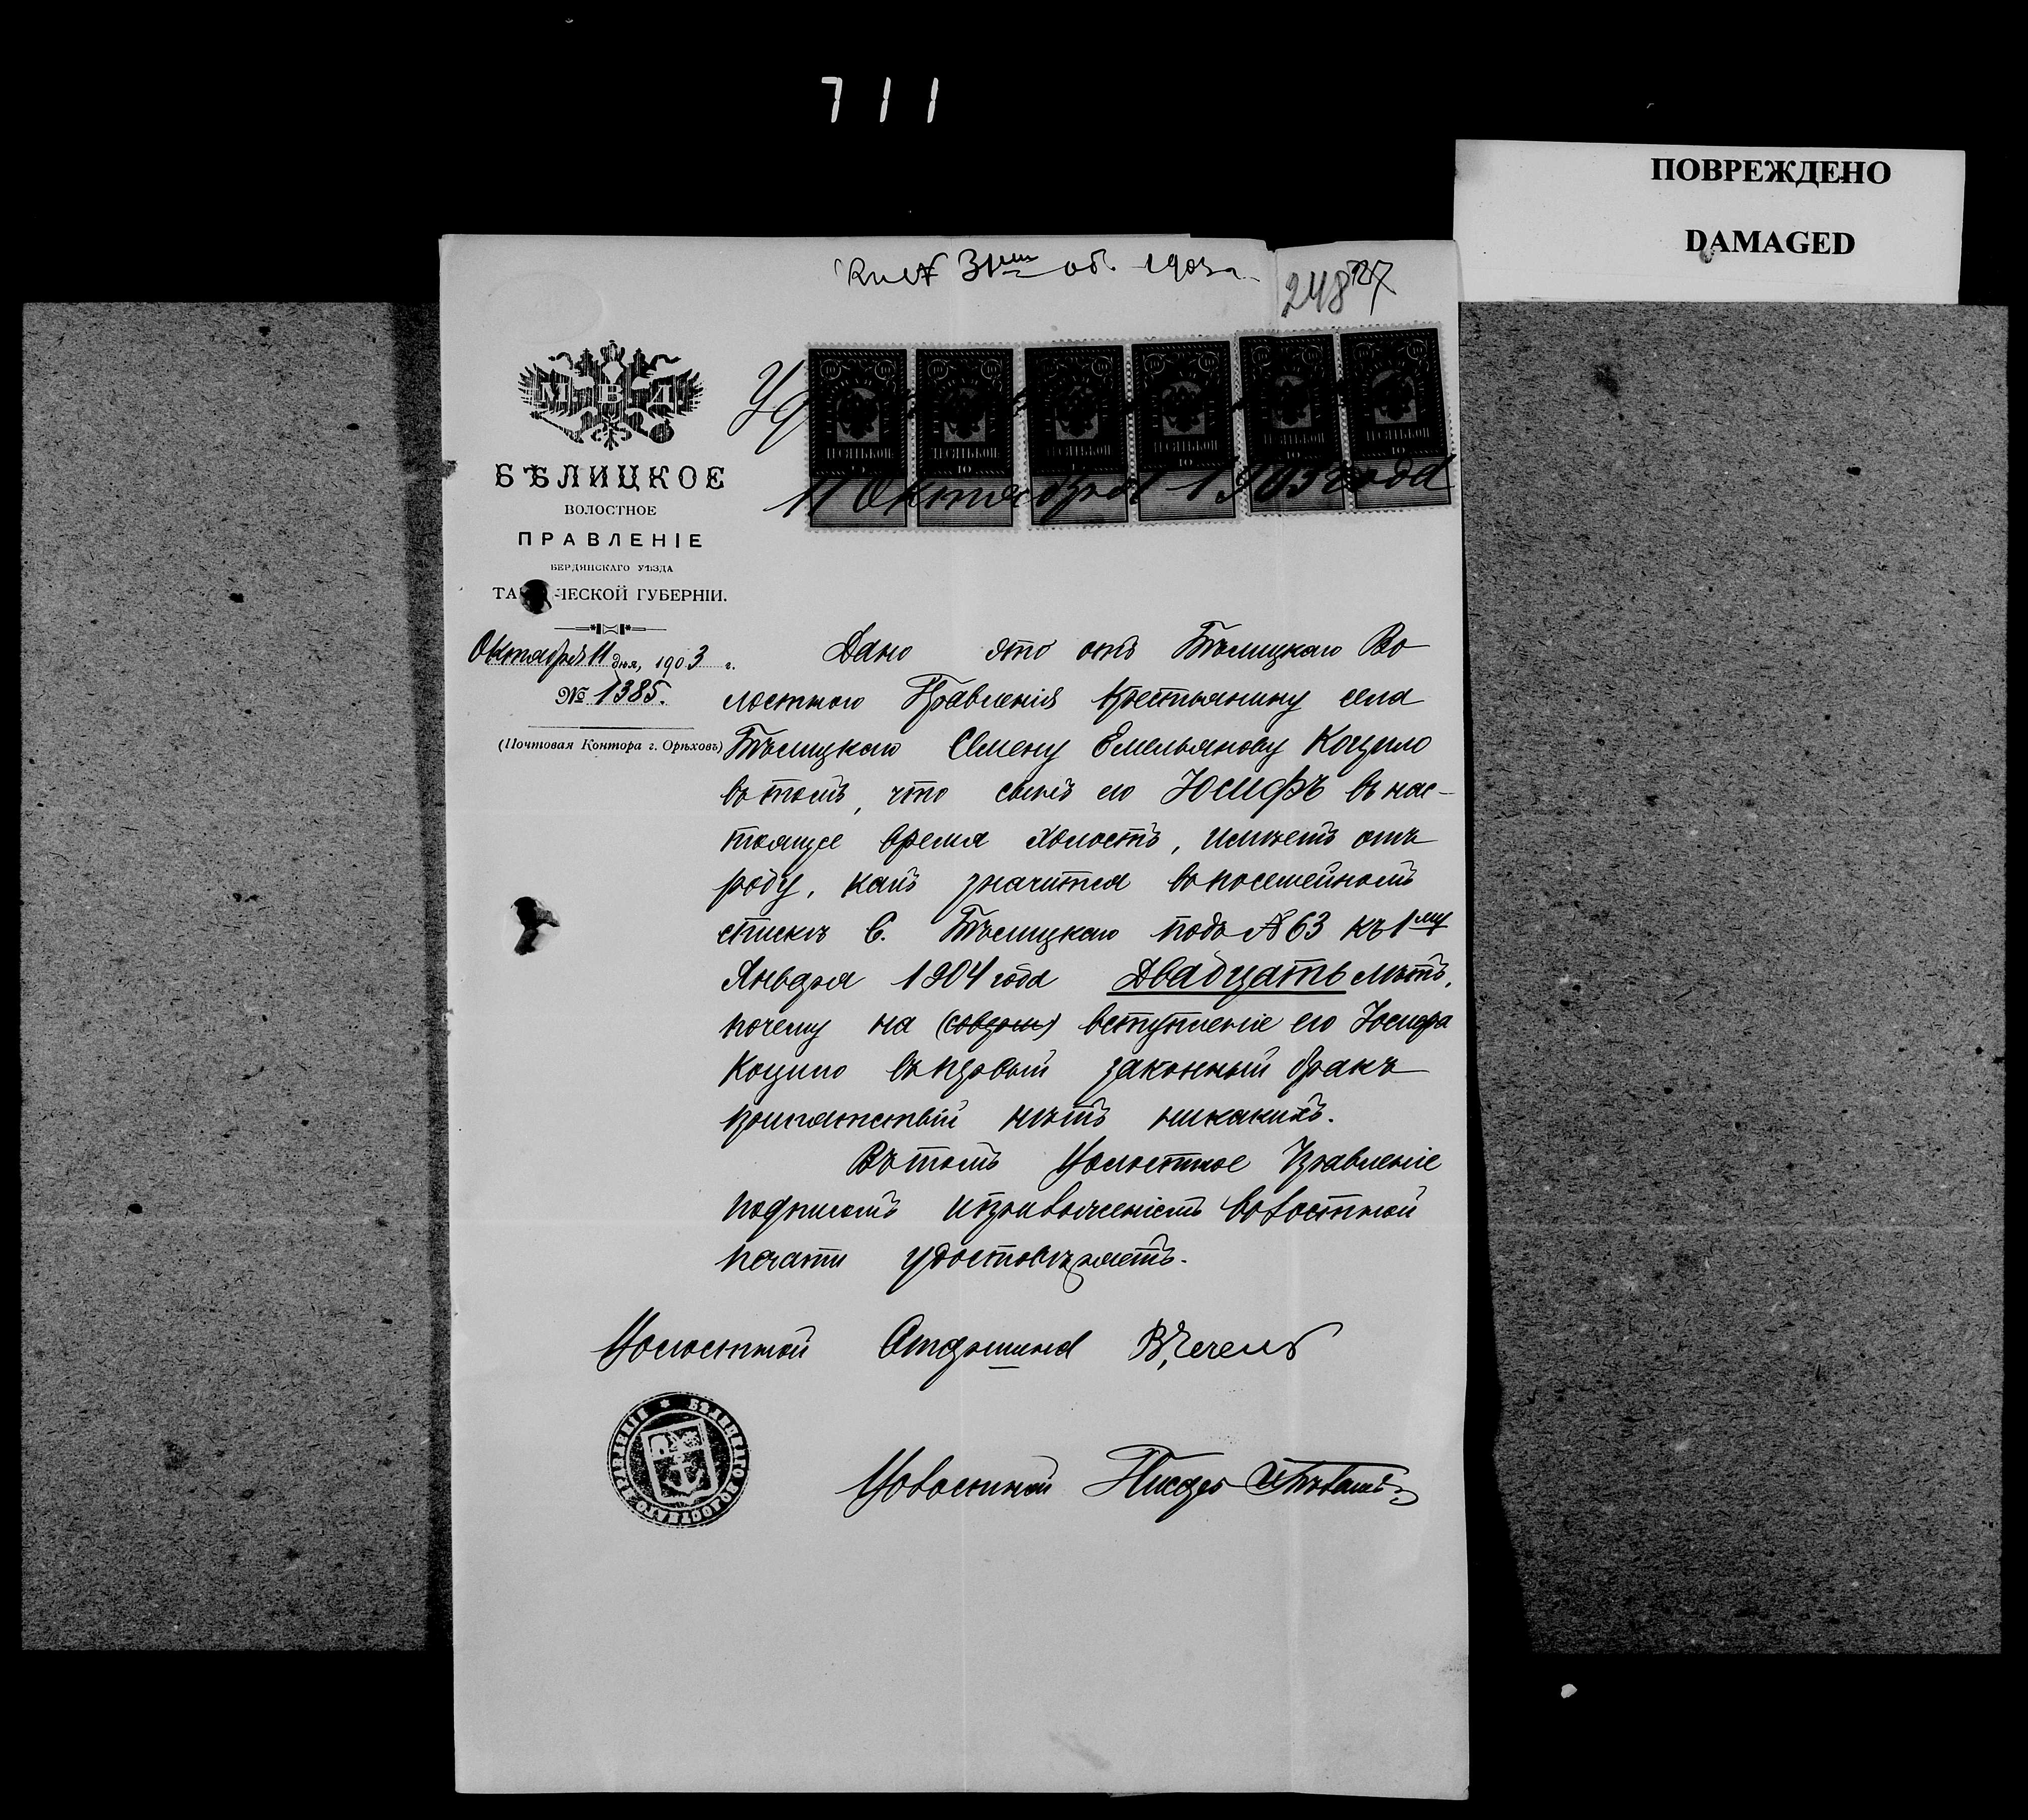 711
ПОВРЕЖДЕНО
DAMAGED
31 об. 1903 г.
248
М В Д
БѢЛИЦКОЕ
ВОЛОСТНОЕ
ПРАВЛЕНІЕ
БЕРДЯНСКАГО УѢЗДА
ТА ЧЕСКОЙ ГУБЕРНІИ.
Октября 11 дня, 1903 г.
№ 1385.
(Почтовая Контора г. Орѣховъ)
11 Октября 1903 года
Дано это отъ Бѣлицкаго Во-
лостного Правленія крестьянину села
Бѣлицкаго Семену Емельянову Коцыло
въ томъ, что сынъ его Юсифъ въ нас-
тоящее время холостъ, имѣетъ отъ
роду, какъ значится въ посемейномъ
спискѣ С. Бѣлицкаго подъ № 63 къ 1му
Января 1904 года двадцать лѣтъ,
почему на вступленіе его Юсифа
Коцыло въ первый законный бракъ
препятствій нѣтъ никакихъ.
Въ томъ Волостное Правленіе
подписомъ и приложеніемъ волостной
печати удостовѣряетъ.
Волостной Старшина
БѢЛИЦКАГО ВОЛОСТНАГО ПРАВЛЕНІЯ
Волостной Писарь